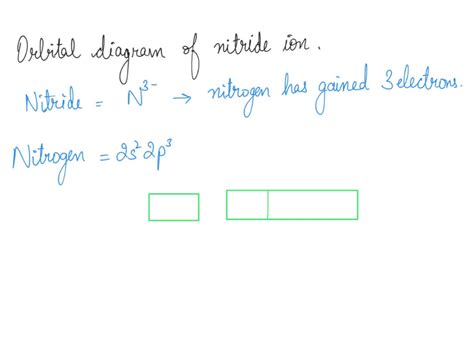 Orbital diagram of nitride ion.
Nitride = N³⁻ → nitrogen has gained 3 electrons.
Nitrogen = 2s² 2p³